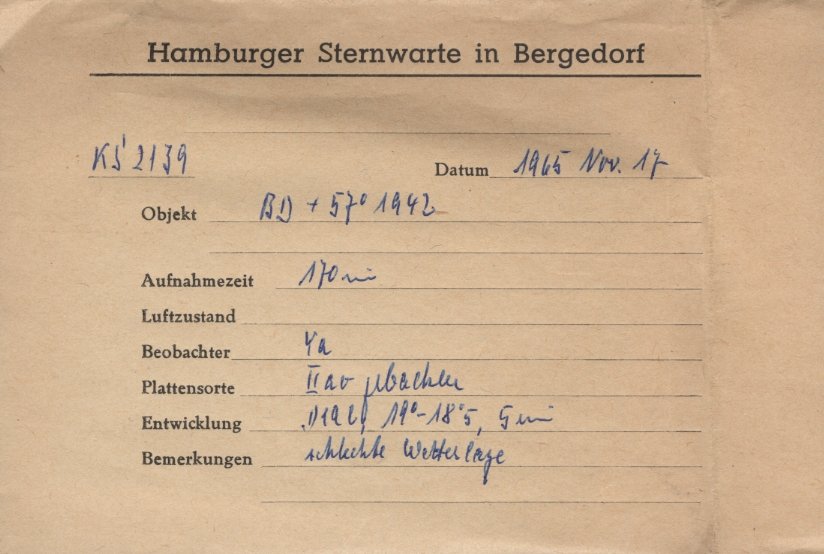 Hamburger Sternwarte in Bergedorf
KS 2139 Datum 1965 Nov. 17
Objekt BD + 57° 1942
Aufnahmezeit 170 min
Luftzustand
Beobachter
Plattensorte IIaO gebacken
Entwicklung D19b, 19°-18°5, 5 min
Bemerkungen schlechte Wetterlage